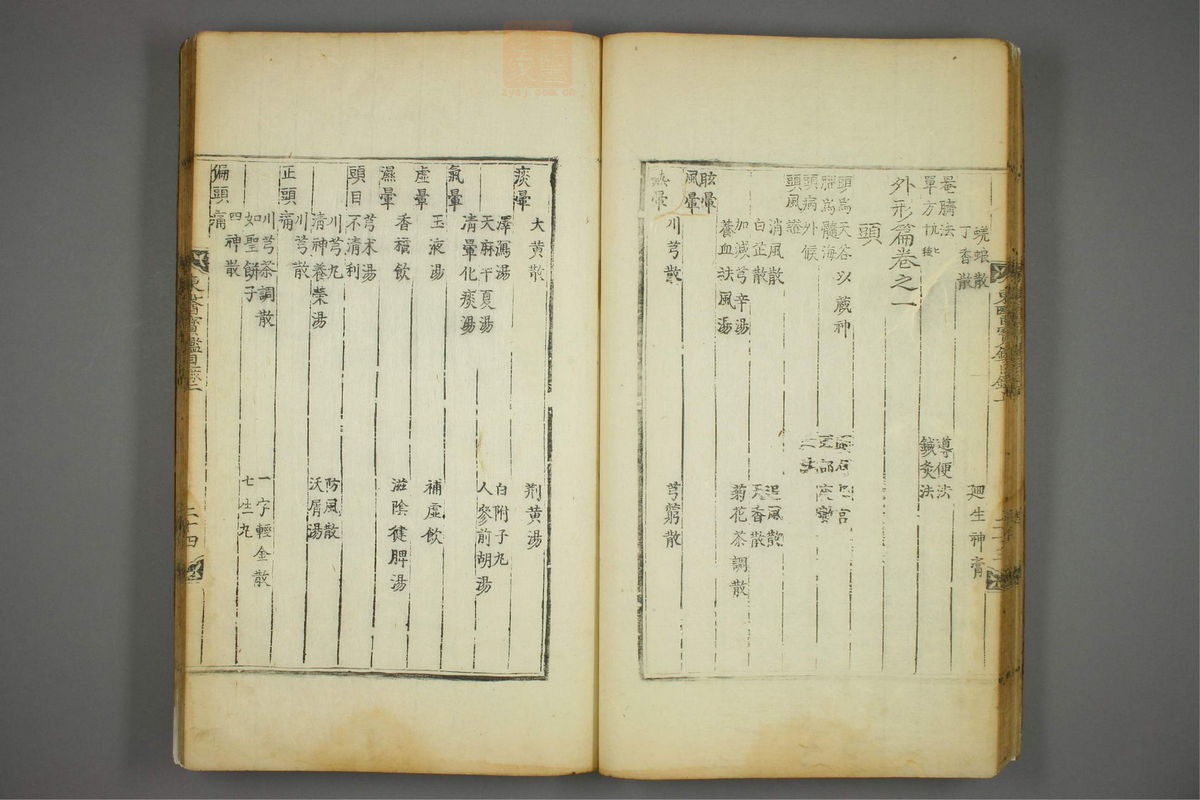 蜣蜋散
丁香散
廻生神膏
菴臍法
導便法
單方
鍼灸法
外形篇卷之一
頭
頭爲天谷以藏神
腦爲髓海
頭病外候
頭風證
消風散
追風散
白芷散
天香散
加減芎辛湯
菊花茶調散
養血祛風湯
眩暈
風暈
川芎散
芎藭散
熱暈
大黄散
荆黄湯
痰暈
澤瀉湯
白附子丸
天麻半夏湯
人參前胡湯
清暈化痰湯
氣暈
玉液湯
補虛飮
虛暈
香橘飮
滋陰健脾湯
濕暈
芎朮湯
頭目不清利
川芎丸
防風散
清神養榮湯
沃屑湯
川芎散
正頭痛
川芎茶調散
一字輕金散
如聖餠子
七生丸
四神散
偏頭痛
東醫寶鑑目錄上
二十四